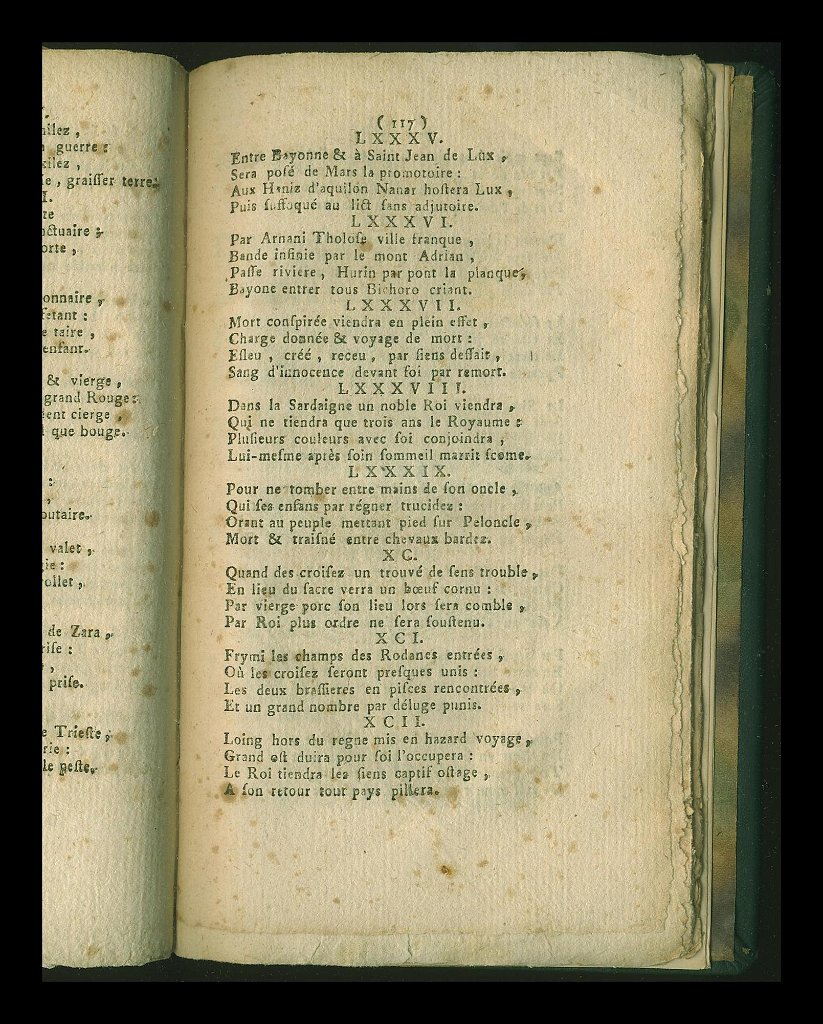 ailez ,
guerre :
xilez ,
, graiſſer terre.
I.
nctuaire ;
orte ,
onnaire ,
ſetant :
e taire ,
enfant.
& vierge ,
grand Rouge :
ent cierge ,
que bouge.
:
,
butaire.
valet ,
ie :
ollet ,
de Zara ,
riſe :
,
priſe.
e Trieſte ,
rie :
le peſte.
( 117 )
LXXXV.
Entre Bayonne & à Saint Jean de Lux ,
Sera poſé de Mars la promotoire :
Aux Haniz d'aquilon Nanar hoſtera Lux ,
Puis ſuffoqué au lict ſans adjutoire.
LXXXVI.
Par Arnani Tholoſe ville franque ,
Bande infinie par le mont Adrian ,
Paſſe riviere , Hurin par pont la planque ,
Bayone entrer tous Bichoro criant.
LXXXVII.
Mort conſpirée viendra en plein effet ,
Charge donnée & voyage de mort :
Eſleu , créé , receu , par ſiens deffait ,
Sang d'innocence devant ſoi par remort.
LXXXVIII.
Dans la Sardaigne un noble Roi viendra ,
Qui ne tiendra que trois ans le Royaume :
Pluſieurs couleurs avec ſoi conjoindra ,
Lui-meſme après ſoin ſommeil marrit ſcome.
LXXXIX.
Pour ne tomber entre mains de ſon oncle ,
Qui ſes enfans par régner trucidez :
Orant au peuple mettant pied ſur Peloncle ,
Mort & traiſné entre chevaux bardez.
XC.
Quand des croiſez un trouvé de ſens trouble ,
En lieu du ſacre verra un bœuf cornu :
Par vierge porc ſon lieu lors ſera comble ,
Par Roi plus ordre ne ſera ſouſtenu.
XCI.
Frymi les champs des Rodanes entrées ,
Où les croiſez ſeront preſques unis :
Les deux braſſieres en piſces rencontrées ,
Et un grand nombre par déluge punis.
XCII.
Loing hors du regne mis en hazard voyage ,
Grand oſt duira pour ſoi l'occupera :
Le Roi tiendra les ſiens captif oſtage ,
A ſon retour tout pays pillera.